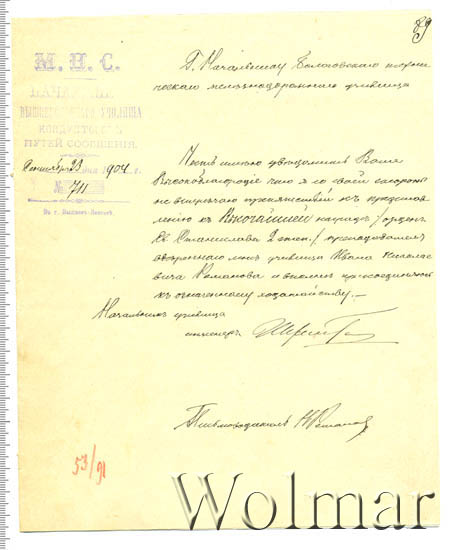 89
М. П. С.
НАЧАЛЬНИКЪ
ВЫШНЕВОЛОЦКАГО УЧИЛИЩА
КОНДУКТОРОВЪ
ПУТЕЙ СООБЩЕНІЯ.
Сентября 23 дня 1904 г.
№ 711
Въ г. Вышнемъ-Волочкѣ
Г. Начальнику Бологовскаго техни
ческаго желѣзнодорожнаго училища
Честь имѣю увѣдомить Ваше
Высокоблагородіе что я со своей стороны
не встрѣчаю препятствій къ представ
ленію къ Высочайшей наградѣ / орденъ
Св. Станислава 2 степ. / преподавателя
ввѣреннаго мнѣ училища Ивана Николае
вича Романова и вполнѣ присоединяюсь
къ означенному ходатайству.
Начальникъ училища
инженеръ
Письмоводитель Н Романов
53/91
Wolmar